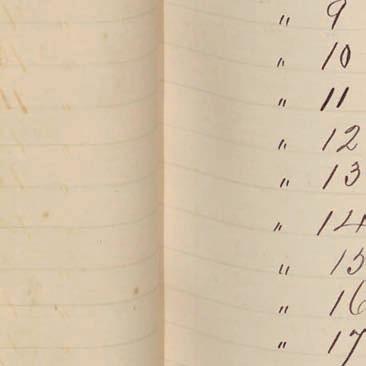 " 9
" 10
" 11
" 12
" 13
" 14
" 15
" 16
" 17